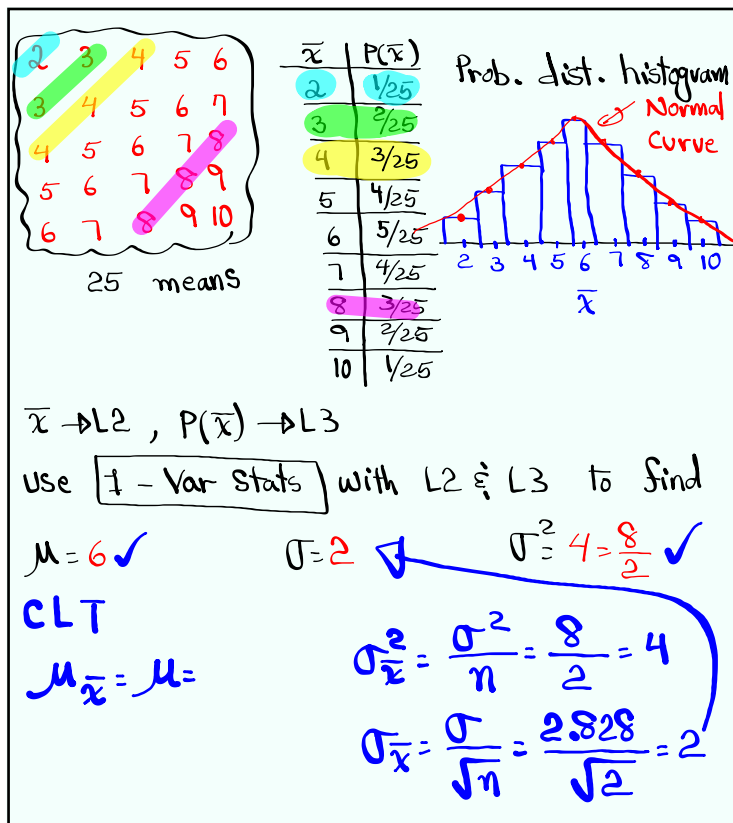 2 3 4 5 6
3 4 5 6 7
4 5 6 7 8
5 6 7 8 9
6 7 8 9 10
25 means
x̄ P(x̄)
2 1/25
3 2/25
4 3/25
5 4/25
6 5/25
7 4/25
8 3/25
9 2/25
10 1/25
Prob. dist. histogram
Normal
Curve
2 3 4 5 6 7 8 9 10
x̄
x̄ → L2 , P(x̄) → L3
Use 1 - Var Stats with L2 & L3 to find
μ = 6 ✓ σ = 2 σ² = 4 = 8/2 ✓
CLT
μx̄ = μ =
σ²x̄ = σ²/n = 8/2 = 4
σx̄ = σ/√n = 2.828/√2 = 2